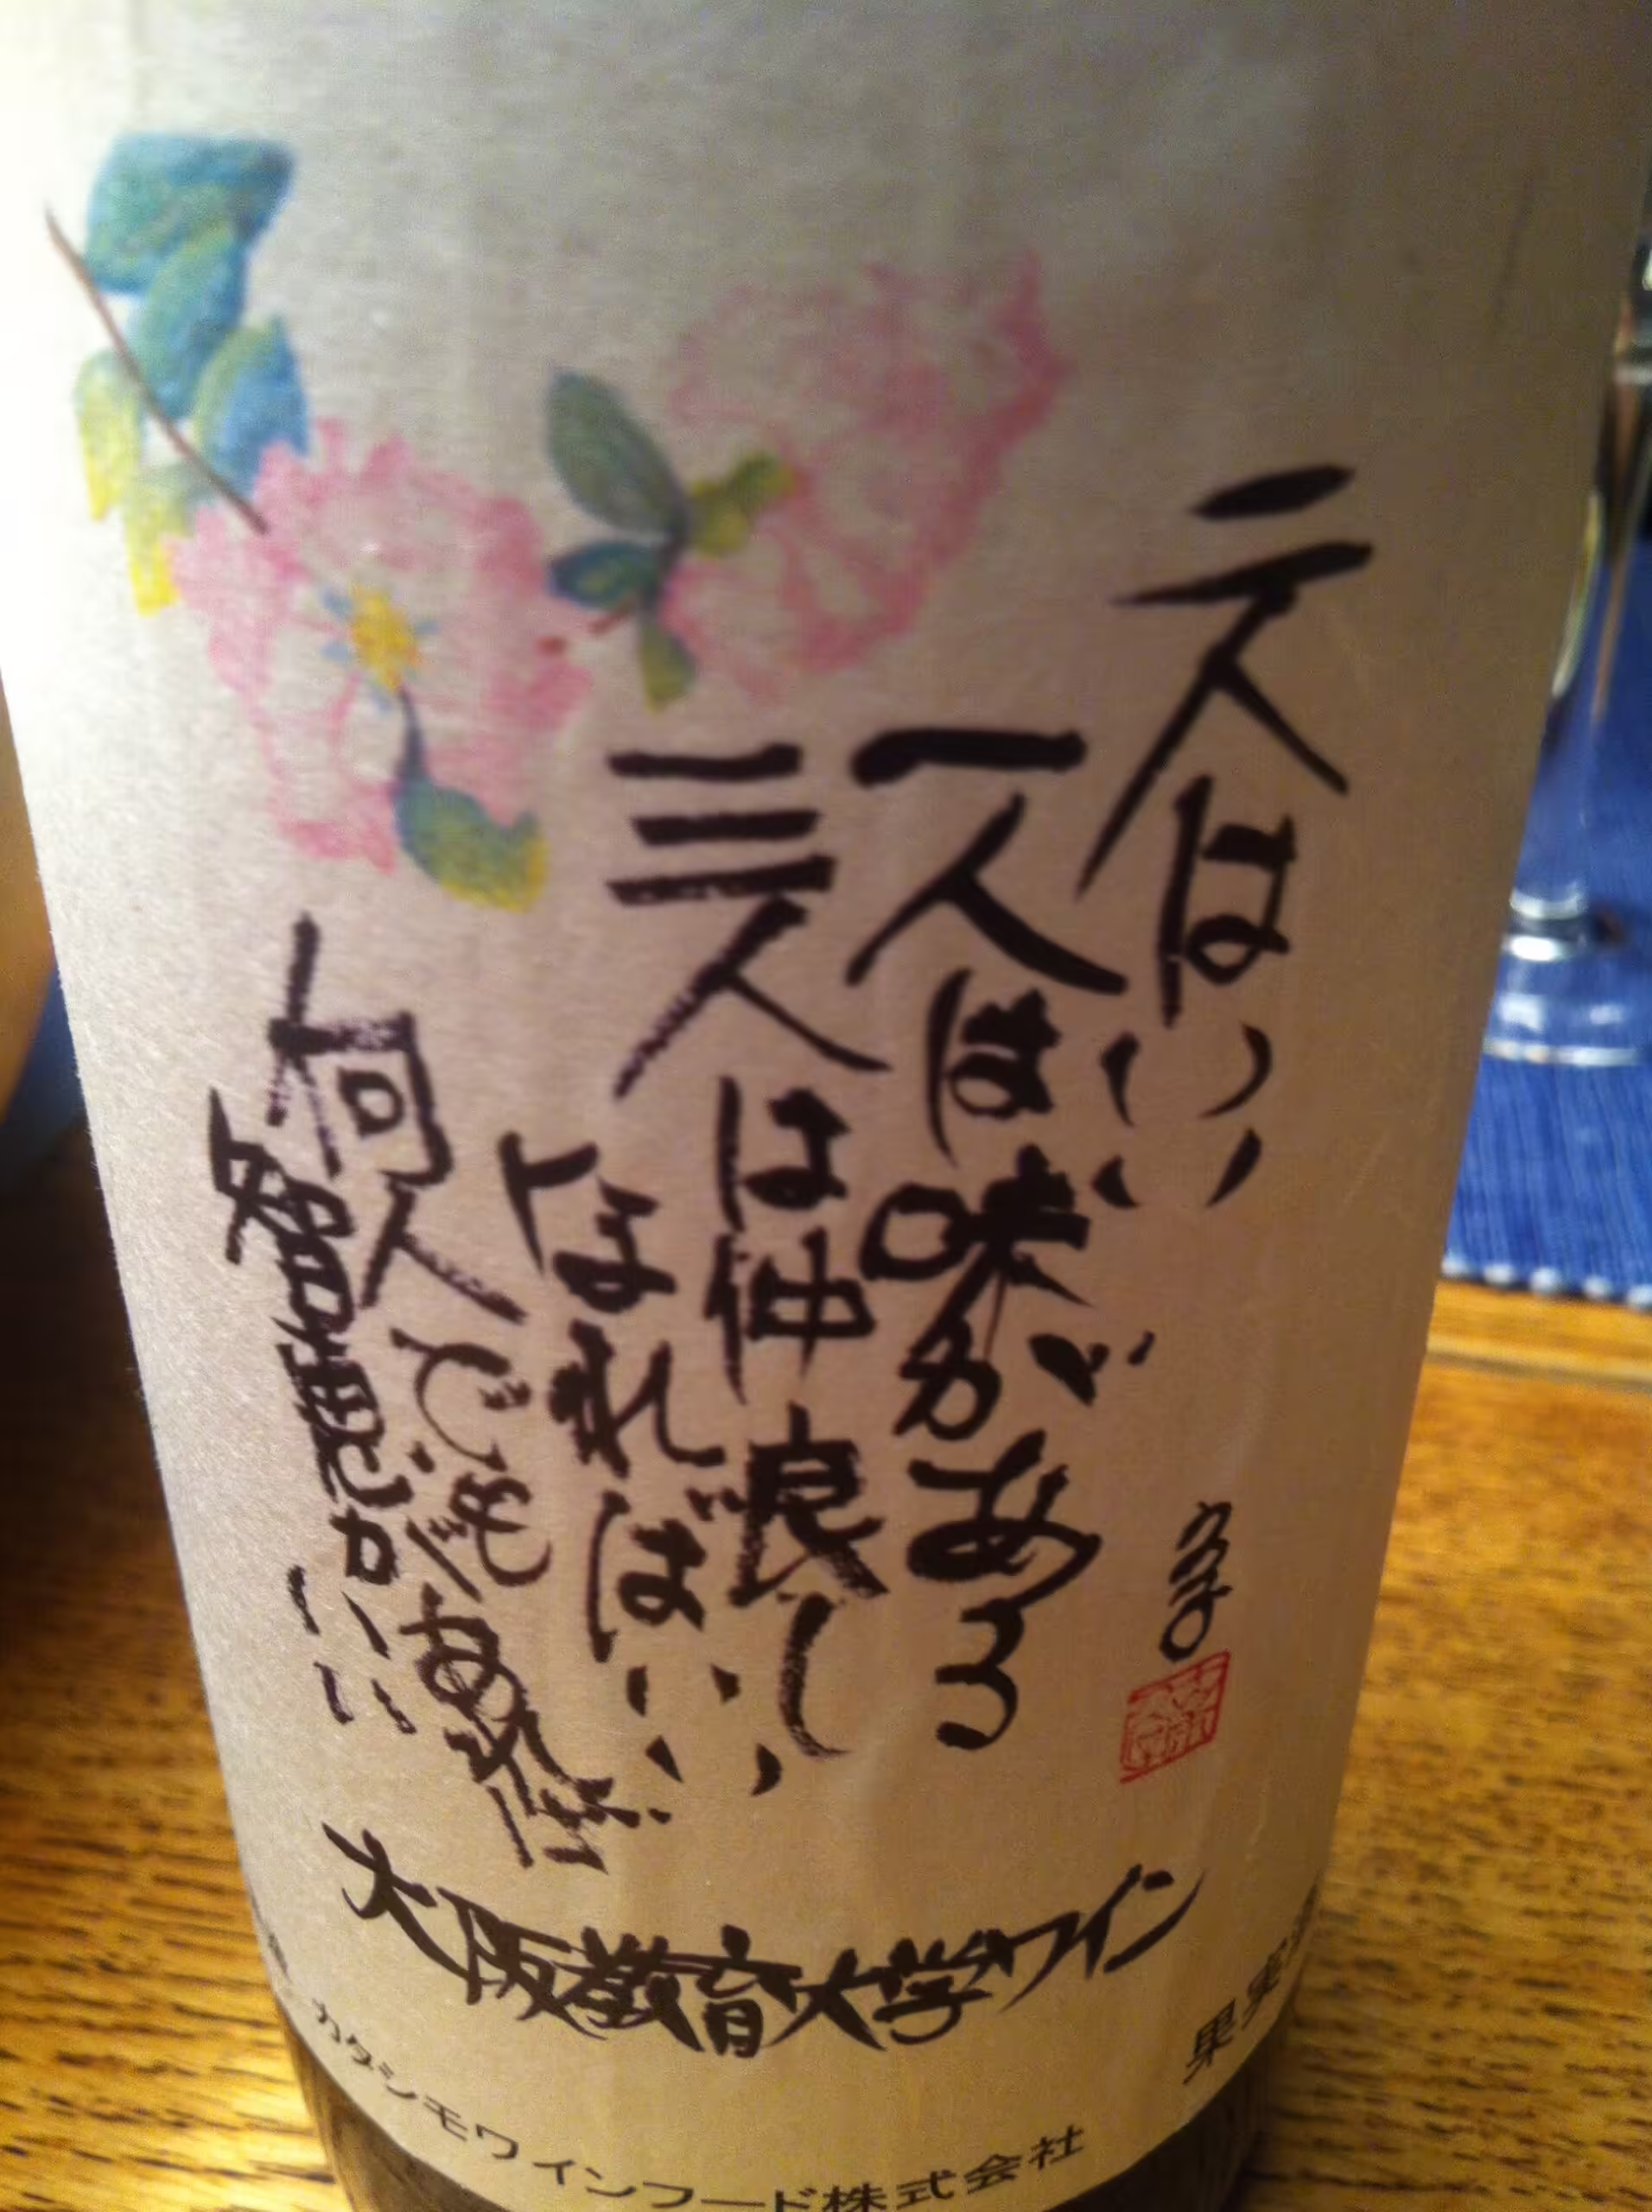 二人はいい
一人は味がある
三人は仲良し
なればいい
何人でもあれば
がいい
久子
大阪教育大学ワイン
カタシモワインフード株式会社
果実